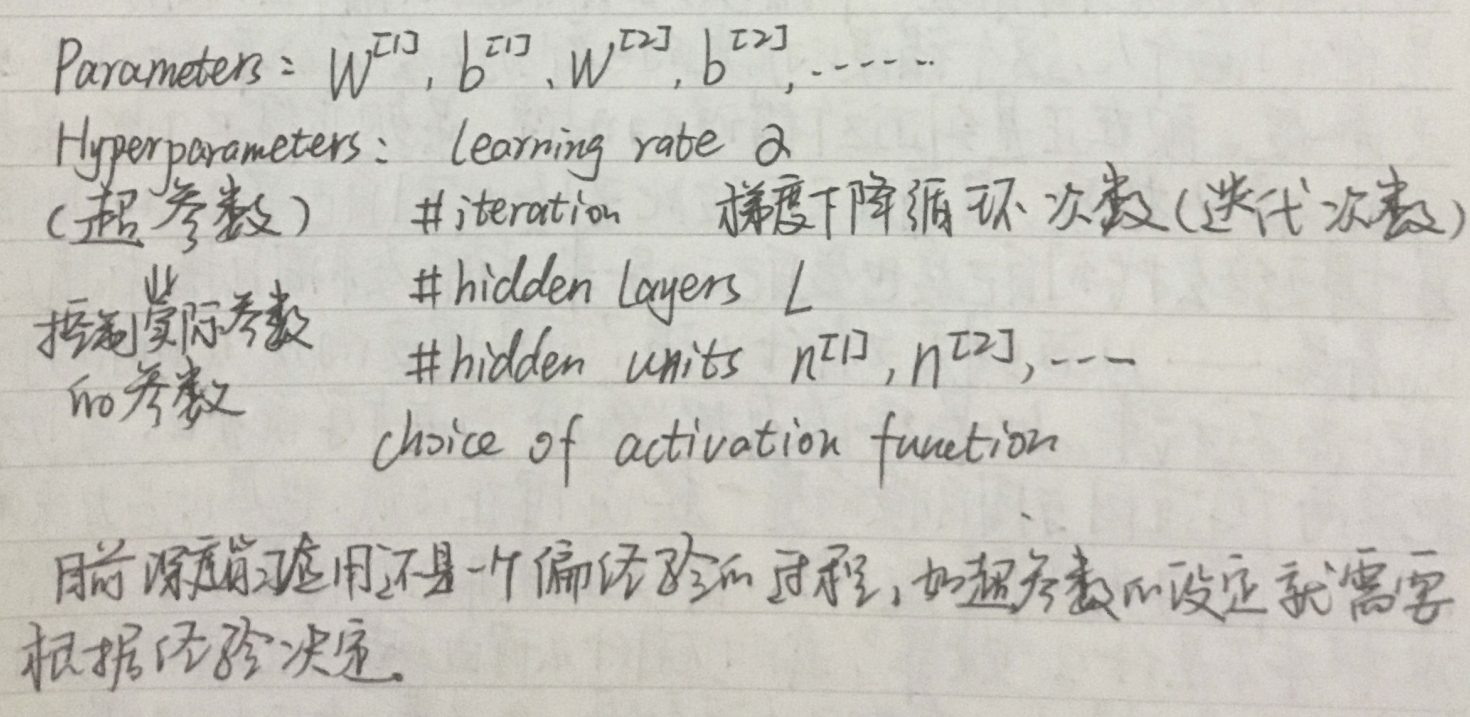 Parameters: W^[1], b^[1]、W^[2], b^[2], ......
Hyperparameters: learning rate α
(超参数) #iteration 梯度下降循环次数(迭代次数)
#hidden layers L
控制实际参数 #hidden units n^[1], n^[2], ...
的参数
choice of activation function
目前深度学习应用还是一个偏经验的过程,如超参数的设定就需要
根据经验决定。